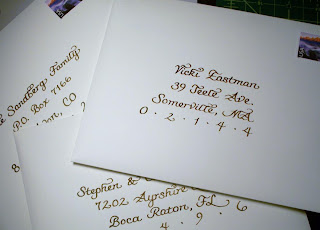 Vicki Eastman
39 Teele Ave.
Somerville, MA
0 · 2 · 1 · 4 · 4
Sandberg Family
P.O. Box 7166
CO
8
Stephen &
7202 Ayrshire
Boca Raton, FL
4 · 9 · 6